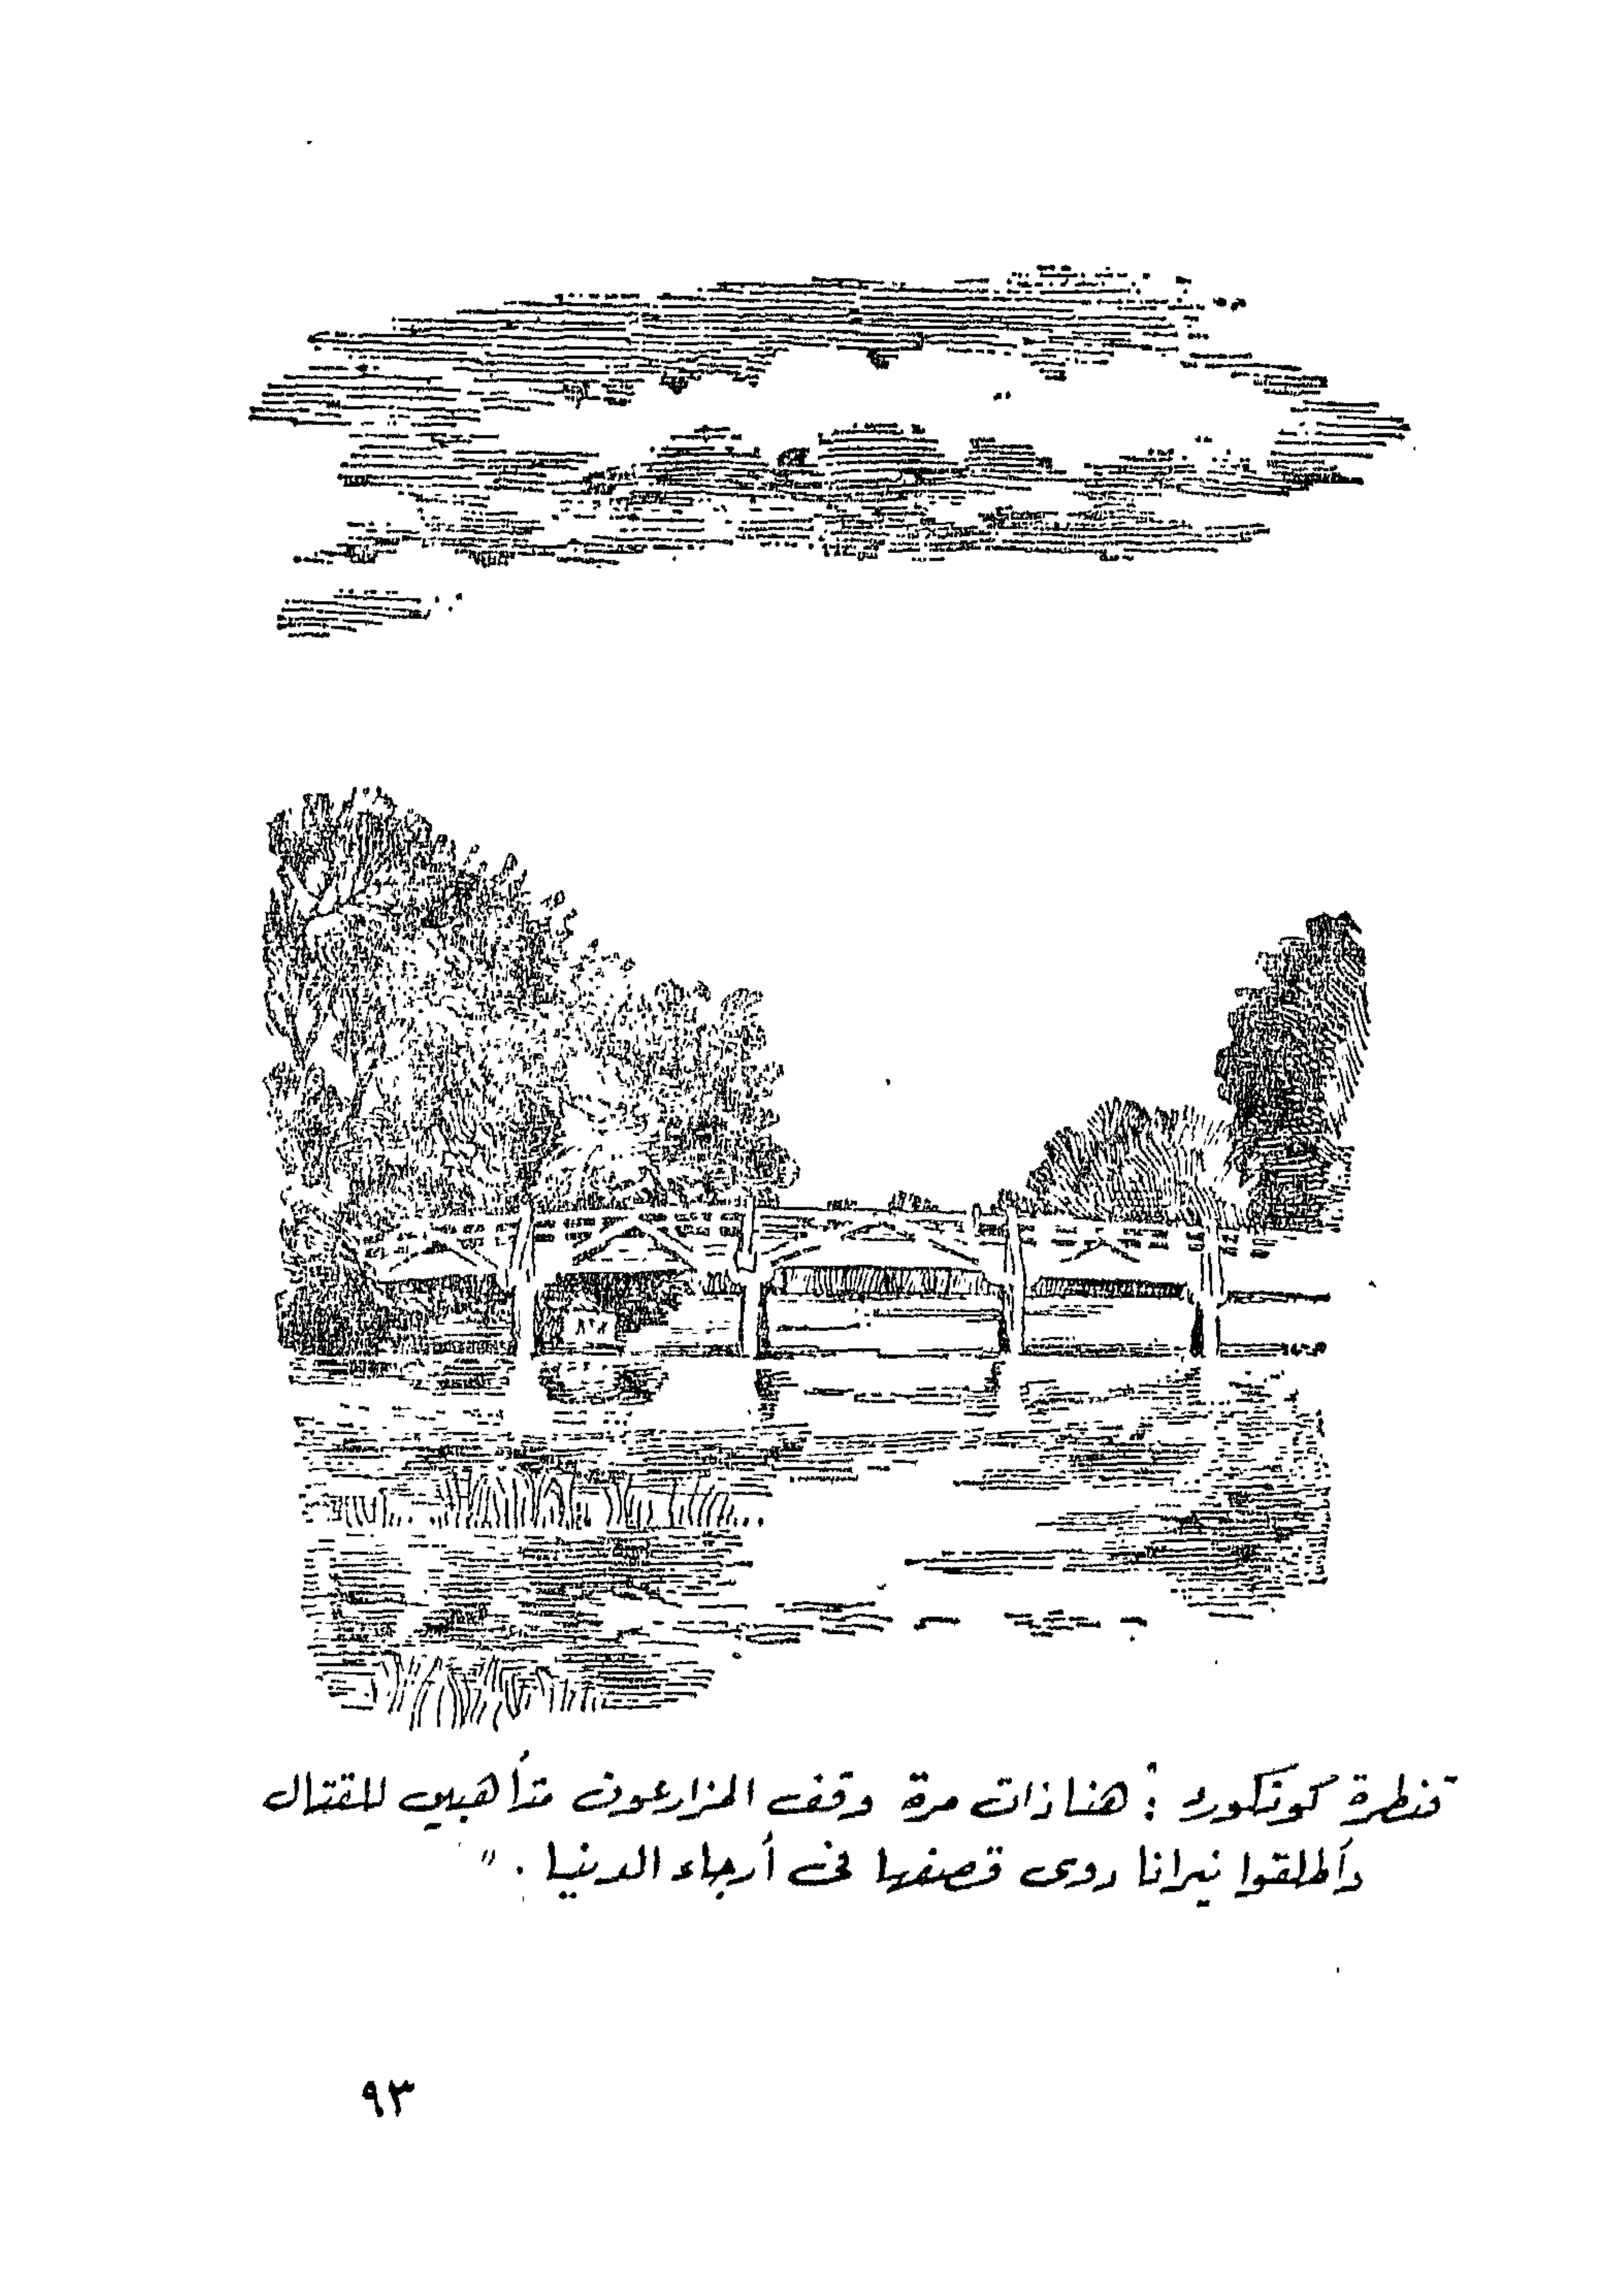 قنطرة كونكورد : هنا ذات مرة وقف المزارعون متأهبين للقتال
وأطلقوا نيرانا دوى قصفها فى أرجاء الدنيا . "
٩٣